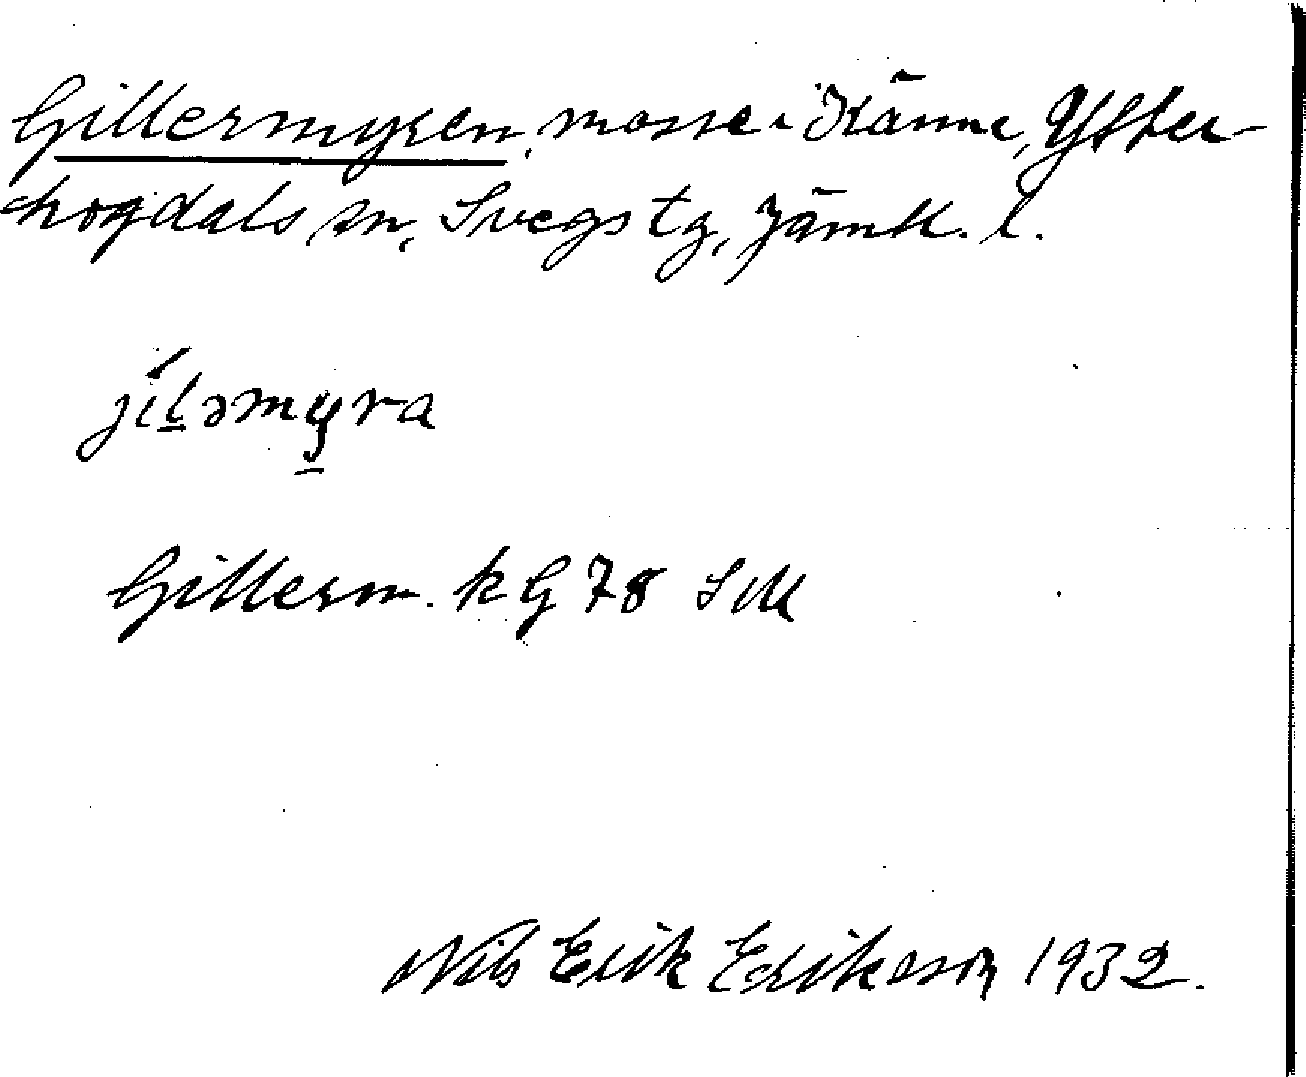 Gillermyren, mosse i Känne, Ytter-
hogdals sn, Svegs tg, Jämtl. l.
jíḻəmy̱ra
Gillerm. k G 78 SM
Nils Erik Erikeson 1932.